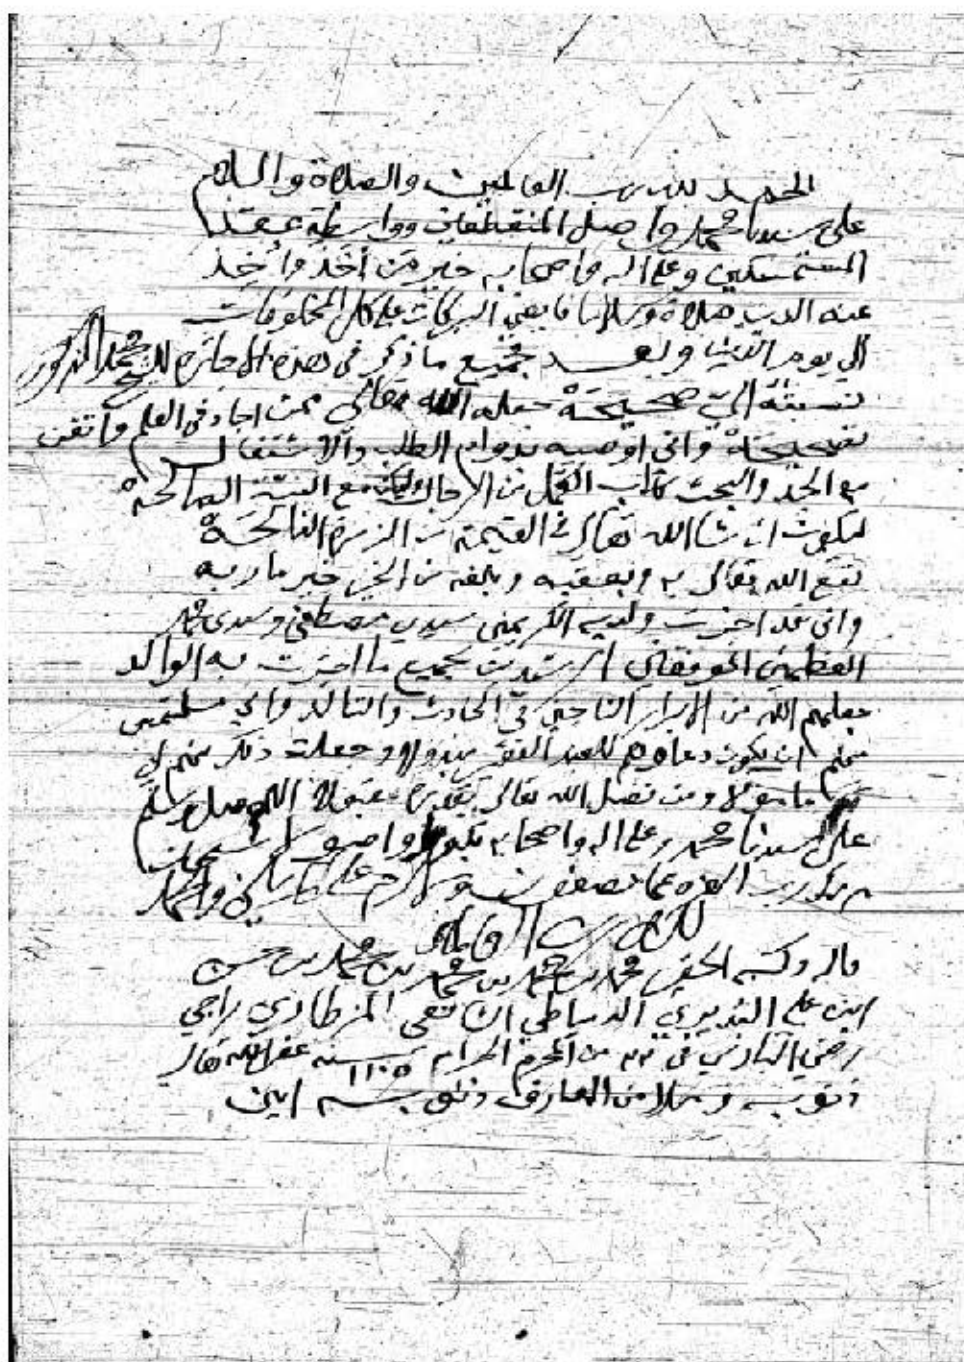 الحمد لله رب العالمين والصلاة والسلام
على سيدنا محمد واصل المنقطعين وواسطة عقد
المستمسكين وعلى اله واصحابه خير من أخذ وأُخِذ
عنه الدين صلاة وسلاما فايضي البركات على كل المخلوقات
الى يوم الدين وبعد فجميع ما ذكر في هذه الاجازة للشيخ محمد المذكور
نسبته اليّ صحيحة جعله الله تعالى ممن اجاد في العلم واتقن
تصحيحه واني اوصيه بدوام الطلب والاشتغال
مع الجد والبحث من الرجال مع النية الصالحة
ليكون ان شا الله تعالى في القيمة من الزمرة الناجحة
نفع الله تعالى به وبعقبه وبلغه من الخير ماربه
واني قد اجزت ولديه الكريمين سيدي مصطفى وسيدي محمد
العظيمين الموفقين الرشيدين بجميع ما اجزت به الوالد
جعلهم الله من الابرار الناجين في الحادث والتالد واني ملتمس
منهم ان يكون دعاوهم للعبد الفقير مبذولا وجعلت ذلك منهم لي
مامولا ومن فضل الله تعالى مقبولا اللهم صل وسلم
على سيدنا محمد وعلى اله واصحابه بكورا واصيلا سبحان
ربك رب العزة عما يصفون وسلام على المرسلين والحمد
لله رب العالمين
قاله وكتبه الحقير محمد بن محمد بن محمد بن محمد بن حسن
ابن علي البديري الدمياطي الشافعي راجي
في من المحرم الحرام سنة ١١٠٥ غفر الله تعالى
ذنوبه وملا من المعارف ذنوبه امين